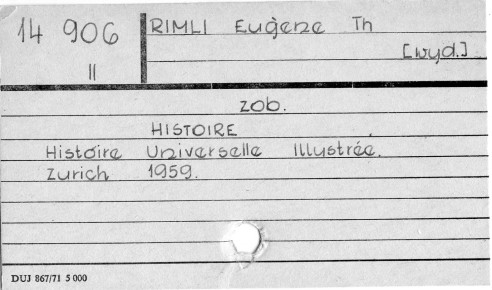 14 906
II
RIMLI Eugène Th
[wyd.]
zob.
HISTOIRE
Histoire Universelle Illustrée.
Zurich 1959.
DUJ 867/71 5 000